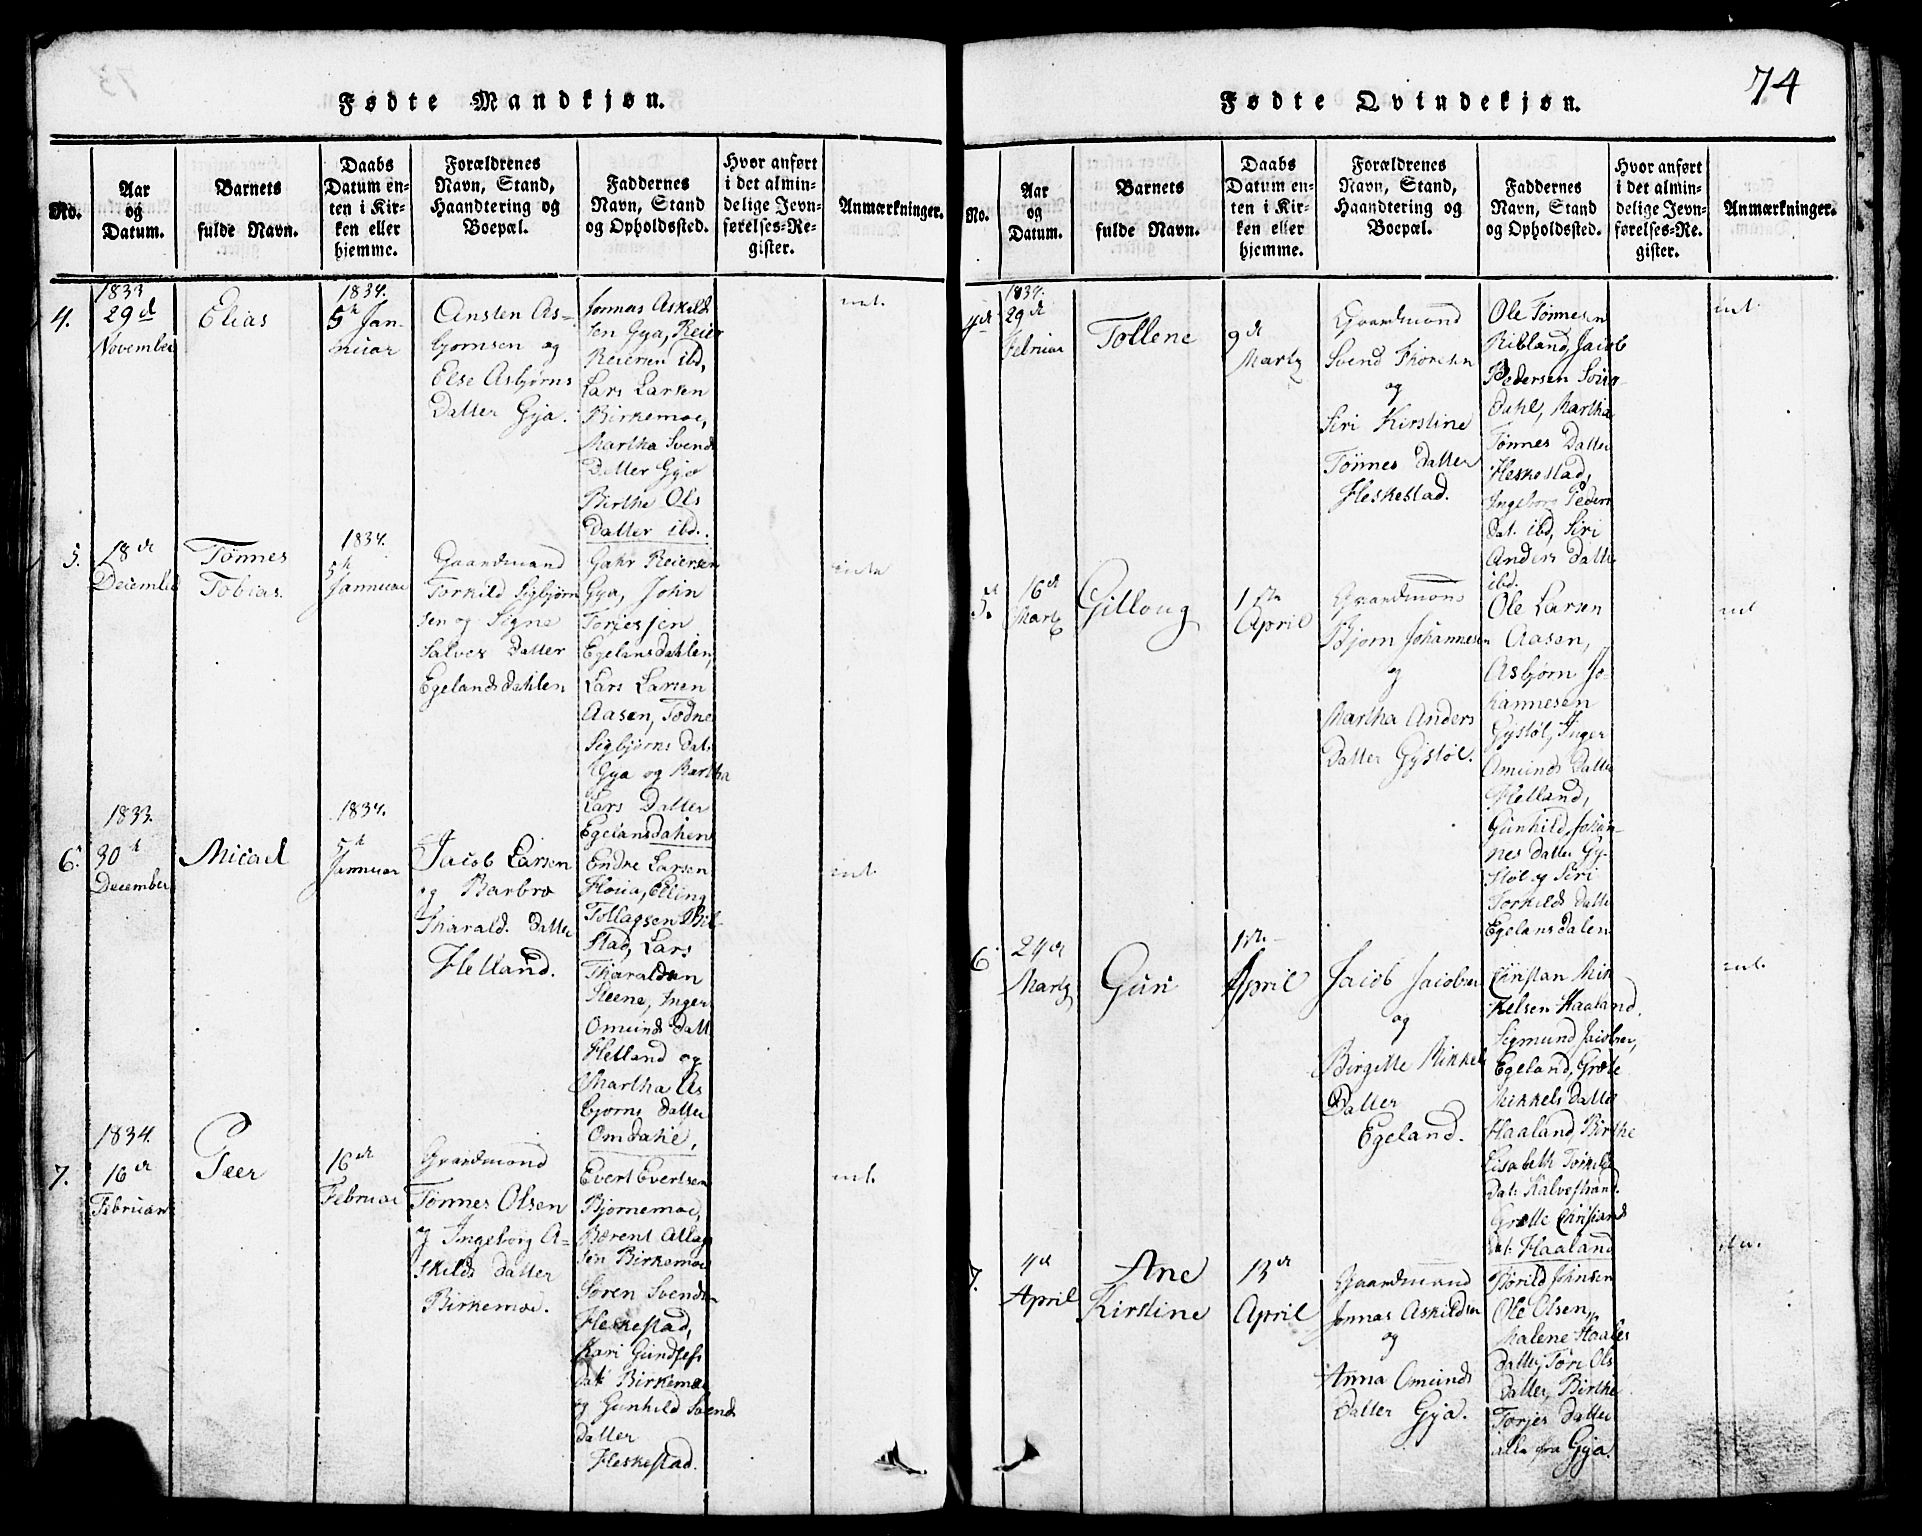 Fødte Mandkjøn.
No.
Aar
og
Datum.
Barnets
fulde Navn.
Daabs
Datum en-
ten i Kir-
ken eller
hjemme.
Forældrenes
Navn, Stand,
Haandtering og
Boepæl.
Faddernes
Navn, Stand
og Opholdssted.
Hvor anført
i det almin-
delige Jevn-
førelses-Re-
gister.
Anmærkninger.
4.
1833
29de
November
Elias
1834.
5te Jan-
nuar
Ansten As-
bjornsen og
Else Asbjørns
Datter Gya.
Jonnas Askild
sen Gya, Reier
Reiersen ibd,
Lars Larsen
Birkemoe,
Martha Svends
Datter Gya
Birthe Ols
Datter ibd.
int.
5.
18de
December
Tønnes
Tobias.
1834.
5te
Jannuar
Gaardmand
Torkild Sigbjørn
sen og Signe
Salves Datter
Egelandsdahlen
Gahr Reiersen
Gya, John
Torjessen
Egelansdahlen,
Lars Larsen
Aasen, Todne
Sigbjørns Dat.
Gya og Martha
Lars Datter
Egelansdahen
inte
6.
1833.
30te
December
Micael
1834.
5te
Jannuar
Jacob Larsen
og Barbro
Tharald. Datter
Helland.
Endre Larsen
Houa, Elling
Tollagsen Bil-
stad, Lars
Tharaldsen
Steene, Inger
Omunds Datt
Helland og
Martha As
bjorns Datter
Omdahe,
int.
7.
1834.
16de
Februar
Peer
16de
Februar
Graardmand
Tønnes Olsen
og Ingeborg A-
skilds Datter
Birkemoe.
Evert Evertsen
Bjørnemoe,
Bærent Atlag
sen Birkemoe
Søren Svends-
Heskestad,
Kari Gundsess
Dat: Birkemoe
og Gunhild Svends
Datter
Heskestad.
int.
Fødte Qvindekjøn.
74
No.
Aar
og
Datum.
Barnets
fulde Navn.
Daabs
Datum en-
ten i Kir-
ken eller
hjemme.
Forældrenes
Navn, Stand,
Haandtering og
Boepæl.
Faddernes
Navn, Stand
og Opholdssted.
Hvor anført
i det almin-
delige Jevn-
førelses-Re-
gister.
Anmærkninger.
4de
1834.
29de
Februar
Tollene
9de
Martz
Graardmand
Svend Thorsen
og
Siri Kirstine
Tønnes Datter
Heskestad.
Ole Tønnesen
Ribland, Jacob
Pedersen Soug-
dahl, Martha
Tønnes Datter
Heskestad,
Ingeborg Peders
Dat. ibd, Siri
Anders Datter
ibd.
int
5.
16de
Martz
Gilloug
1ste
April
Graardmans
Bjorn Johannesen
og
Martha Anders
Datter Gystøl.
Ole Larsen
Aasen,
Asbjørn Jo-
hannesen
Gystøl, Inger
Omunds Datter
Helland,
Gunhild Johan-
nes Datter Gy-
støl og Siri
Torkilds Datte
Egelansdalen
int
6
24de
Martz
Guri
1ste
April
Jacob Jacobsen
og
Birgitte Mikkels
Datter
Egeland.
Christan Mik
kelsen Haaland.
Sigmund Jacobsen,
Egeland, Grote
Mikkels Datter
Haaland, Birthe
Lisabeth Torkils
Dat: Kalvestrand.
Grotte Christians
Dat: Haaland
int.
7.
4de
April
Ane
Kirstine
13de
April
Gaardmand
Jonnas Askildsen
og
Anna Omunds
Datter Gya.
Torild Johnsen
Ole Olsen,
Malene Haales
Datter, Tori Ols
Datter, Birthe
Torjes Datter
alle fra Gya.